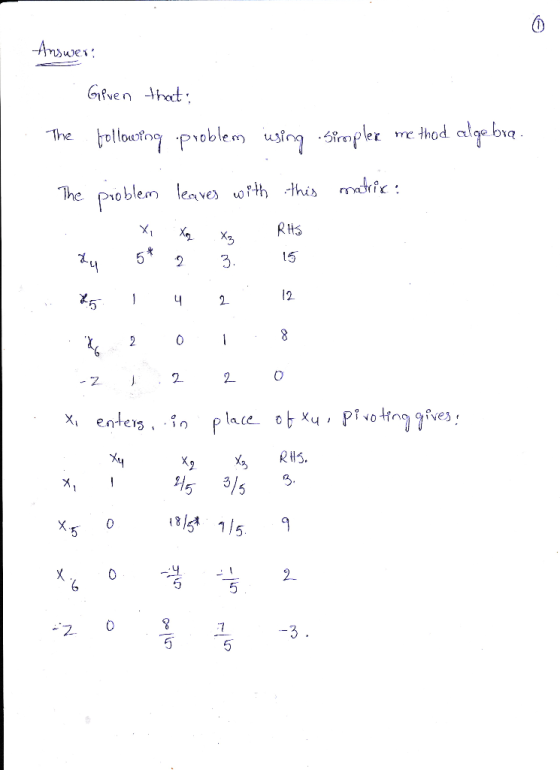 ①
Answer:
Given that:
The following problem using simplex method algebra.
The problem leaves with this matrix:
x₁ x₂ x₃ RHS
x₄ 5* 2 3. 15
x₅ 1 4 2 12
x₆ 2 0 1 8
-z 1 2 2 0
x₁ enters, in place of x₄, pivoting gives:
x₄ x₂ x₃ RHS.
x₁ 1 2/5 3/5 3.
x₅ 0 18/5* 7/5. 9
x₆ 0 -4/5 -1/5 2
-z 0 8/5 7/5 -3.